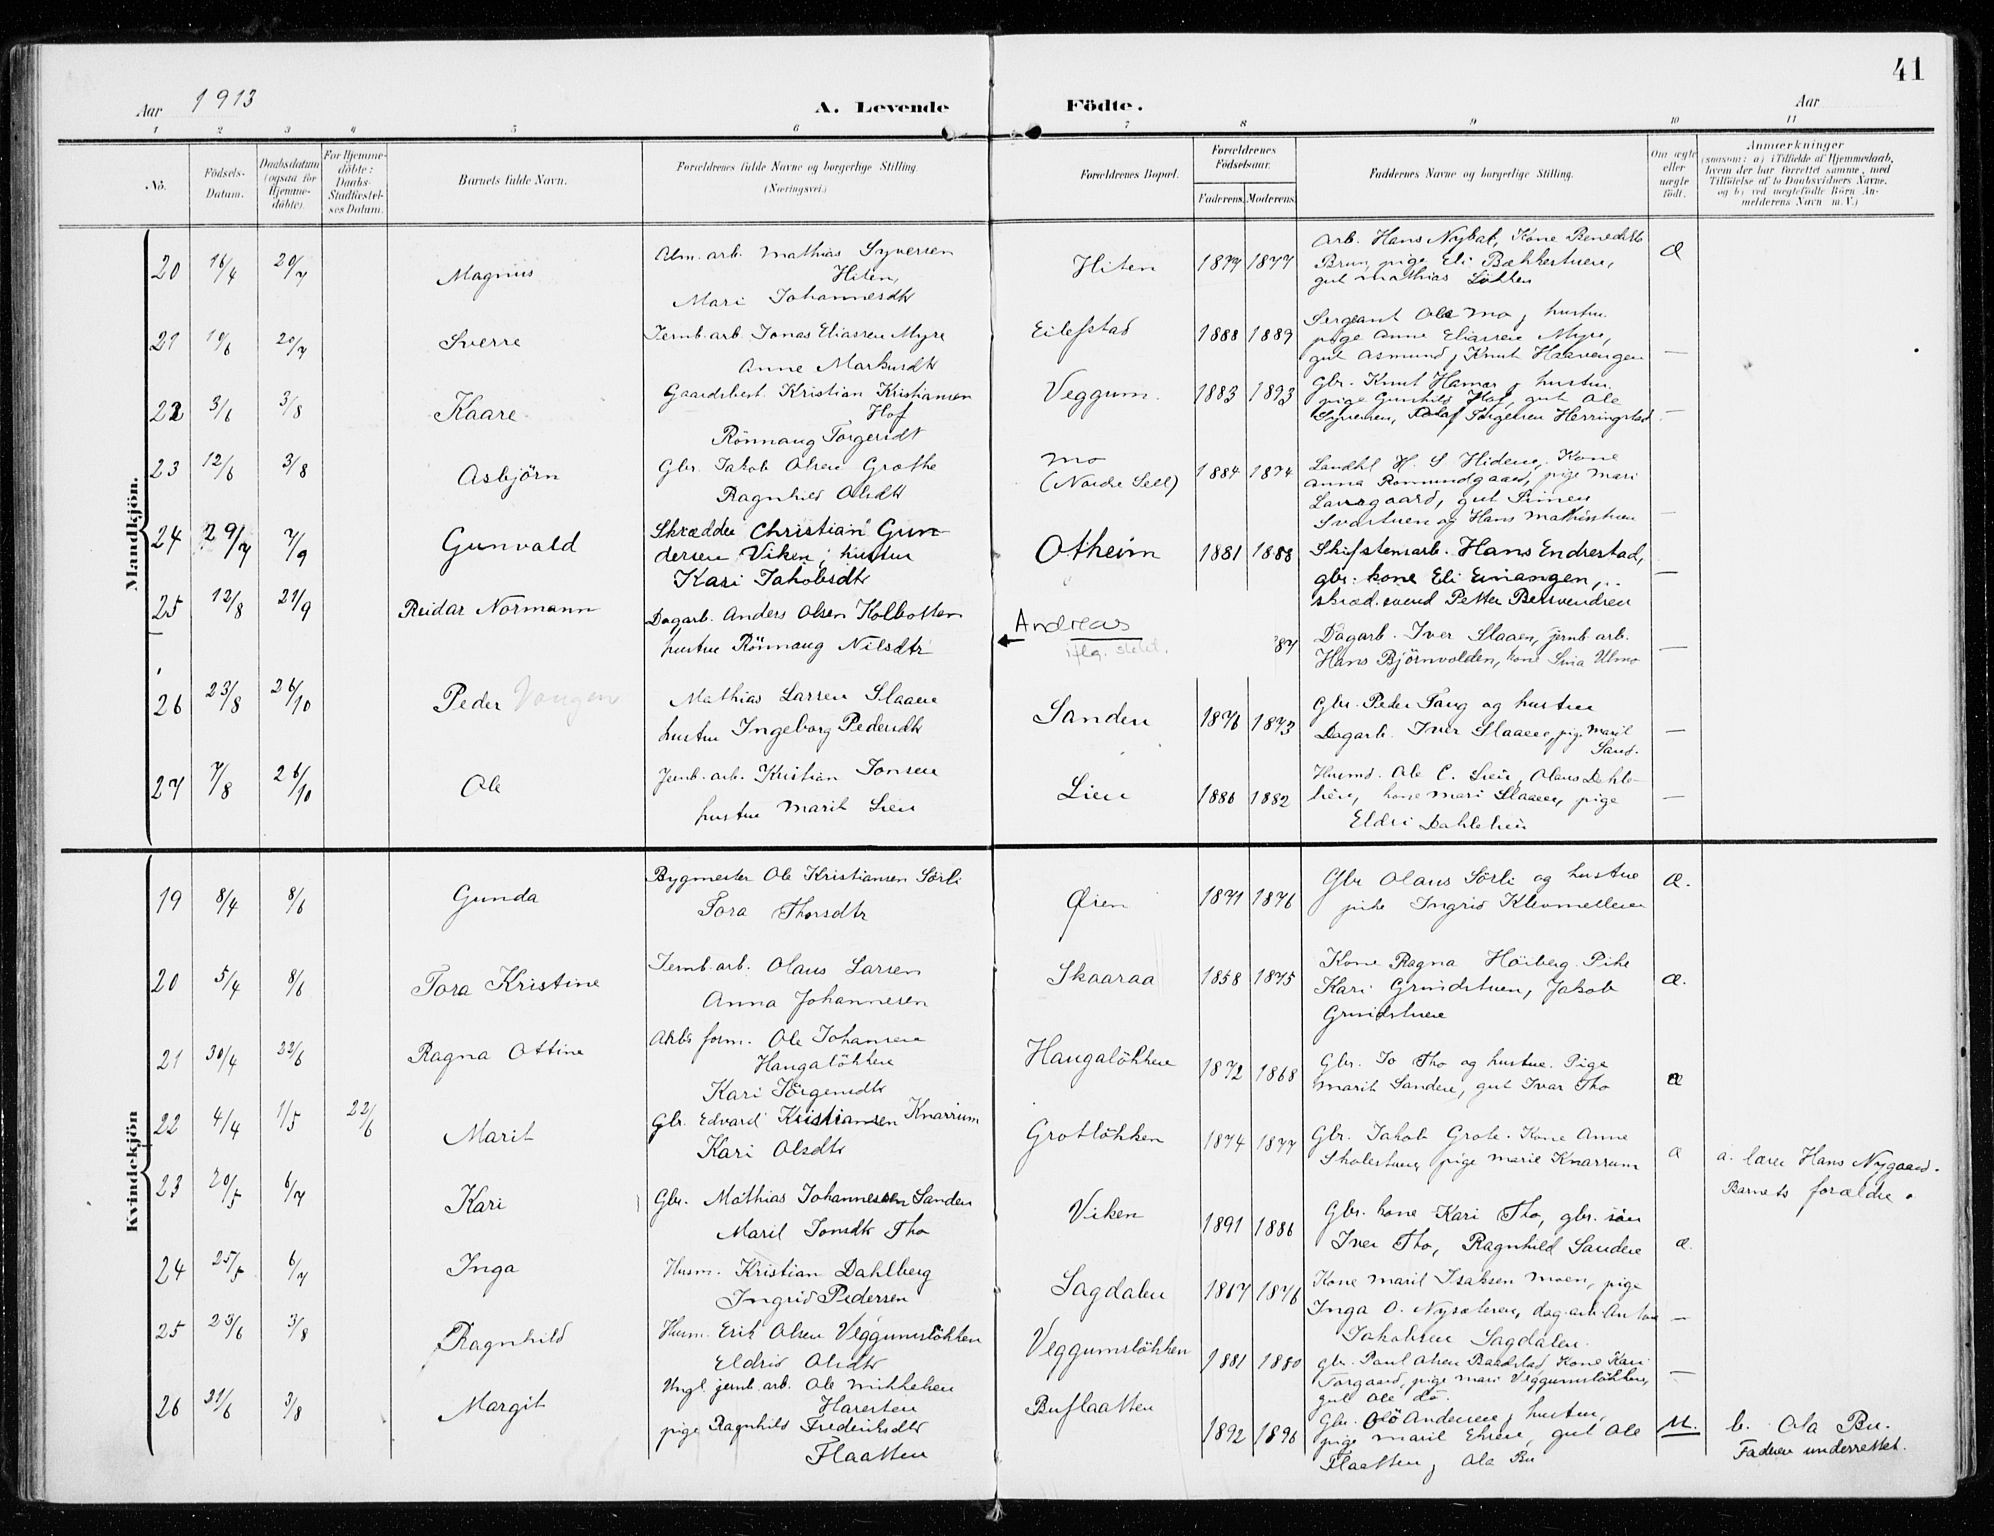 41
Aar 1913 A. Levende Födte. Aar
1 2 3 4 5 6 7 8 9 10 11
No.
Födsels-Datum.
Daabsdatum (ogsaa for Hjemme-döbte).
For Hjemme-döbte: Daabs-Stadfæstel-ses Datum.
Barnets fulde Navn.
Forældrenes fulde Navne og borgerlige Stilling. (Næringsvei.)
Forældrenes Bopæl.
Forældrenes Födselsaar.
Faderens. Moderens.
Faddernes Navne og borgerlige Stilling.
Om ægte eller uægte födt.
Anmærkninger
(saasom: a) i Tilfælde af Hjemmedaab, hvem der har forrettet samme, med Tilföielse af to Daabsvidners Navne, og b) ved uægtefödte Börn Anmelderens Navn m. V.)
Mandkjön.
20 16/4 20/7 Magnus
Alm. arb. Mathias Syversen
Hiten,
Mari Johannesdtr
Hiten 1877 1877
Arb. Hans Nybak, Kone Benedikte
Brun, pige Eli Bækkestuen,
gut Mathias Lökken
Æ
21 10/6 20/7 Sverre
Jernb. arb. Jonas Eliassen Myre
Anne Markusdtr
Eilefstad 1888 1889
Sergeant Ole Mo, hustru
pige Anne Eliassen Myre,
gut Asmund, Knut Haavengen
—
22 3/6 3/8 Kaare
Gaardsbest. Kristian Kristiansen
Hof
Rönnaug Torgersdt
Veggum. 1883 1893
Gbr. Knut Hamar, hustru
pige Gunhild Hof, gut Ole
Syversen, Olaf Torgersen Herringstad
—
23 12/6 3/8 Asbjörn
Gbr. Jakob Olsen Grothe
Ragnhild Olsdtr
Mo
(Nordre Sell) 1884 1874
Landhl H. S Hiden, Kone
Anna Romundgaard, pige Mari
Laurgaard, gut Simen
Svartuen og Hans Mathistuen
—
24 29/7 7/9 Gunvald
Skrædder Christian Gun-
dersen Viken, hustru
Kari Jakobsdtr
Otheim 1881 1888
Skifstensarb. Hans Endrestad,
gbr. kone Eli Einangen,
skræd.svend Petter Bersvendsen
—
25 12/8 21/9 Reidar Normann
Dagarb. Anders Olsen Kolbotten
hustru Rönnaug Nilsdtr
← Andreas
iflg. slekt.
87
Dagarb. Iver Slaaen, jernb. arb.
Hans Björnvolden, kone Sina Ulmo
—
26 23/8 26/10 Peder Vangen
Mathias Larsen Slaaen
hustru Ingeborg Pedersdtr
Sanden 1876 1873
Gbr. Peder Taug og hustru
Dagarb. Iver Slaaen, pige Marit
Sand.
—
27 7/8 26/10 Ole
Jernb. arb. Kristian Jonsen
hustru Marit Lien
Lien 1886 1882
Husmd. Ole C. Lien, Olaus Dahle-
lien, kone Mari Slaaen, pige
Eldri Dahlelien
—
Kvindekjön
19 8/4 8/6 Gunda
Bygmester Ole Kristiansen Sörli
Tora Thorsdtr
Øien 1871 1876
Gbr Olaus Sörli og hustru
pike Ingrid Klevmetlien
Æ.
20 5/4 8/6 Tora Kristine
Jernb. arb. Olaus Larsen
Anna Johannesen
Skaaraa 1858 1875
Kone Ragna Höiberg. Pike
Kari Grindstuen, Jakob
Grindstuen
Æ.
21 30/4 22/6 Ragna Ottine
Arb. form. Ole Johansen
Haugalökken
Kari Jörgensdtr
Haugalökken 1872 1868
Gbr. Jo Tho og hustru. Pige
Marit Sanden, gut Ivar Tho
Æ
22 4/4 1/5 22/6 Marit
Gbr. Edvard Kristiansen Knarrum
Kari Olsdtr
Grotlökken 1874 1877
Gbr. Jakob Grote. Kone Anne
Skolestuen, pige Marie Knarrum
Æ
a. lærer Hans Nygaard.
Barnets forældre.
23 20/5 6/7 Kari
Gbr. Mathias Johannessen Sanden
Marit Jonsdtr Tho
Viken 1891 1886
Gbr. kone Kari Tho, gbr. sön
Iver Tho, Ragnhild Sanden
Æ.
24 25/5 6/7 Inga
Husm. Kristian Dahlberg
Ingrid Pedersen
Sagdalen 1867 1876
Kone Marit Isaksen Moen, pige
Inga O. Nysæteren, dag.arb. Anton
Jakobsen Sagdalen.
—
25 23/6 3/8 Ragnhild
Husm. Erik Olsen Veggumslökken
Eldrid Olsdtr
Veggumslökken 1881 1880
Gbr. Paul Olsen Baadstad, Kone Kari
Torgaard, pige Mari Veggumslökken,
gut Ole do.
—
26 21/6 3/8 Margit
Ungk. jernb. arb. Ole Mikkelsen
Haresten
pige Ragnhild Frederiksdtr
Flaatten
Buflaatten 1892 1896
Gbr. Ole Andersen, hustru,
pige Marit Ehren, gut Ole
Flaatten, Ola Bu
U.
b. Ola Bu.
Faderen underrettet.